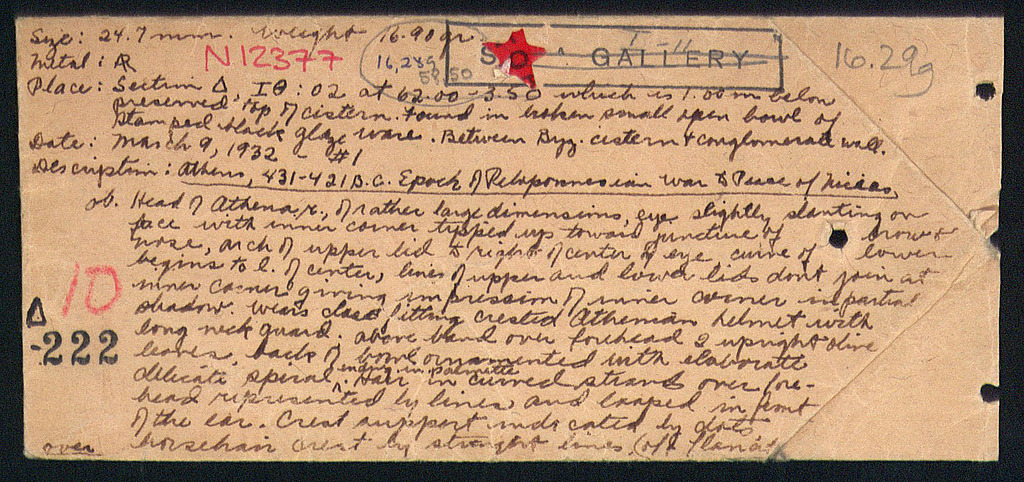 Size: 24.7 mm. Weight 16.90 gr.
N12377
16,289
59.50
S GALLERY
16.29g
Metal: AR
Place: Section Δ, ΙΘ:02 at 62.00-3.50 which is 1.00 m below
preserved top of cistern. Found in broken small open bowl of
stamped black glaze ware. Between Byz. cistern & conglomerate wall.
Date: March 9, 1932 - #1
Description: Athens, 431-421 B.C. Epoch of Peloponnesian War to Peace of Nicias.
ob. Head of Athena, r., of rather large dimensions, eye slightly slanting on
face with inner corner tipped up toward juncture of brow &
nose, arch of upper lid to right of center of eye curve of lower
begins to l. of center, lines of upper and lower lids don't join at
inner corner giving impression of inner corner in partial
shadow. Wears close fitting crested Athenian helmet with
long neck guard. above band over forehead 2 upright olive
leaves, back of bowl ornamented with elaborate
delicate spiral ending in palmette. Hair in curved strand over fore-
head represented by lines and looped in front
of the ear. Crest support indicated by dots
horsehair crest by straight lines, (off flan at
over
10
Δ
-222